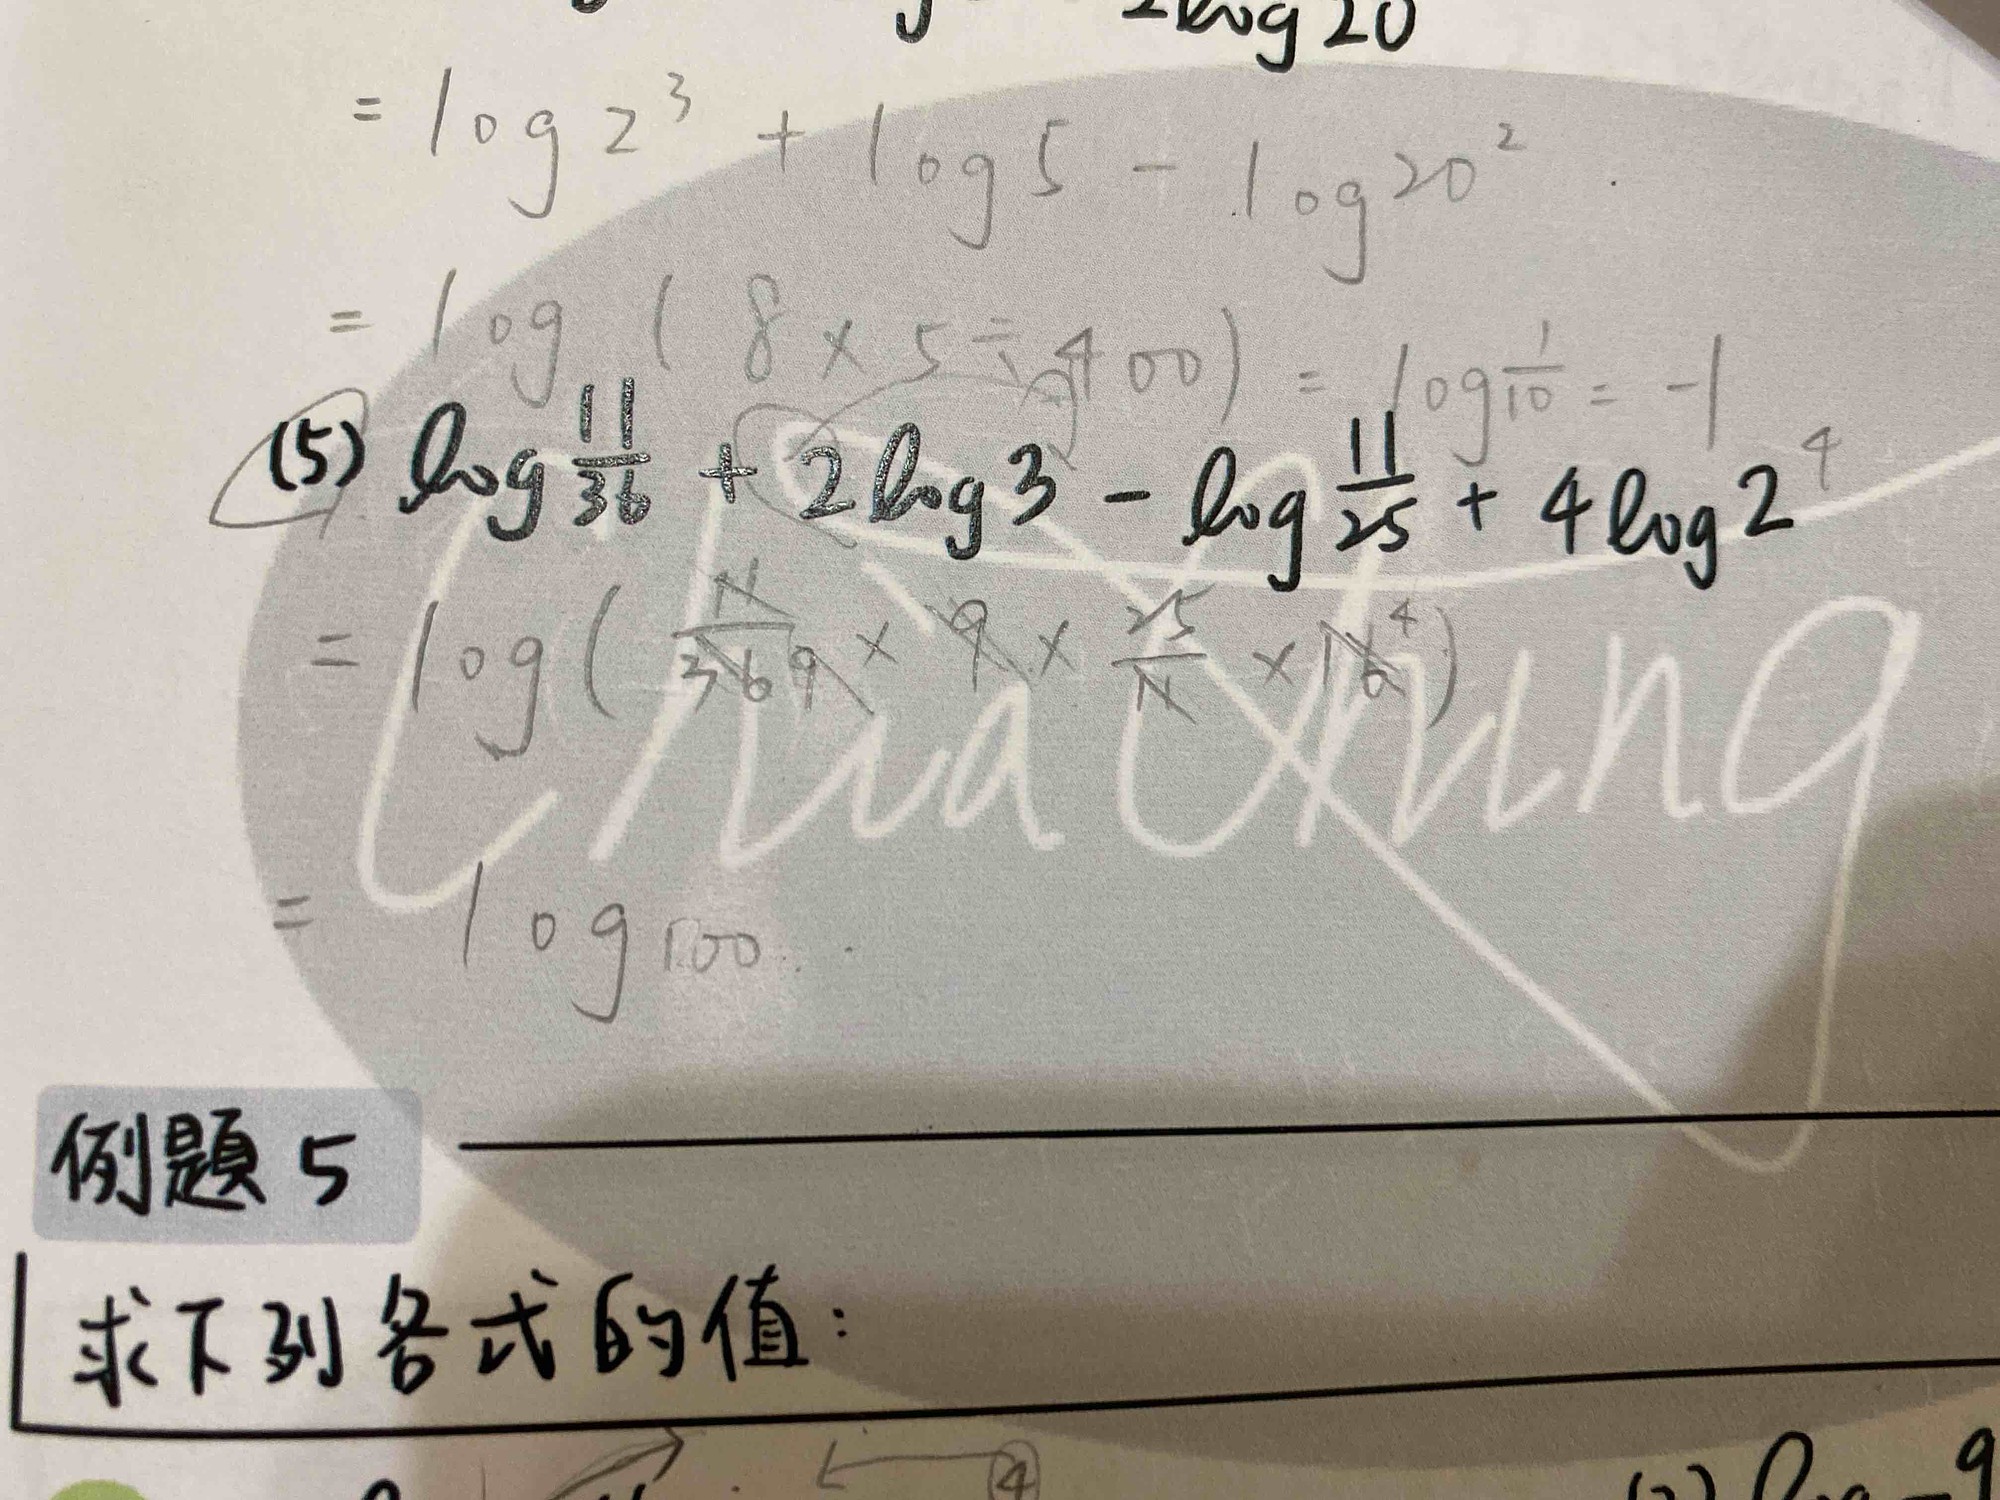 2log20
= log2³ + log5 - log20²
= log(8×5÷400) = log 1/10 = -1
(5) log 11/36 + 2log3 - log 11/25 + 4log2 4
= log( 11/36 9 × 9 × 25/11 × 16 4)
= log100
Chia Ching
例題 5
求下列各式的值:
④